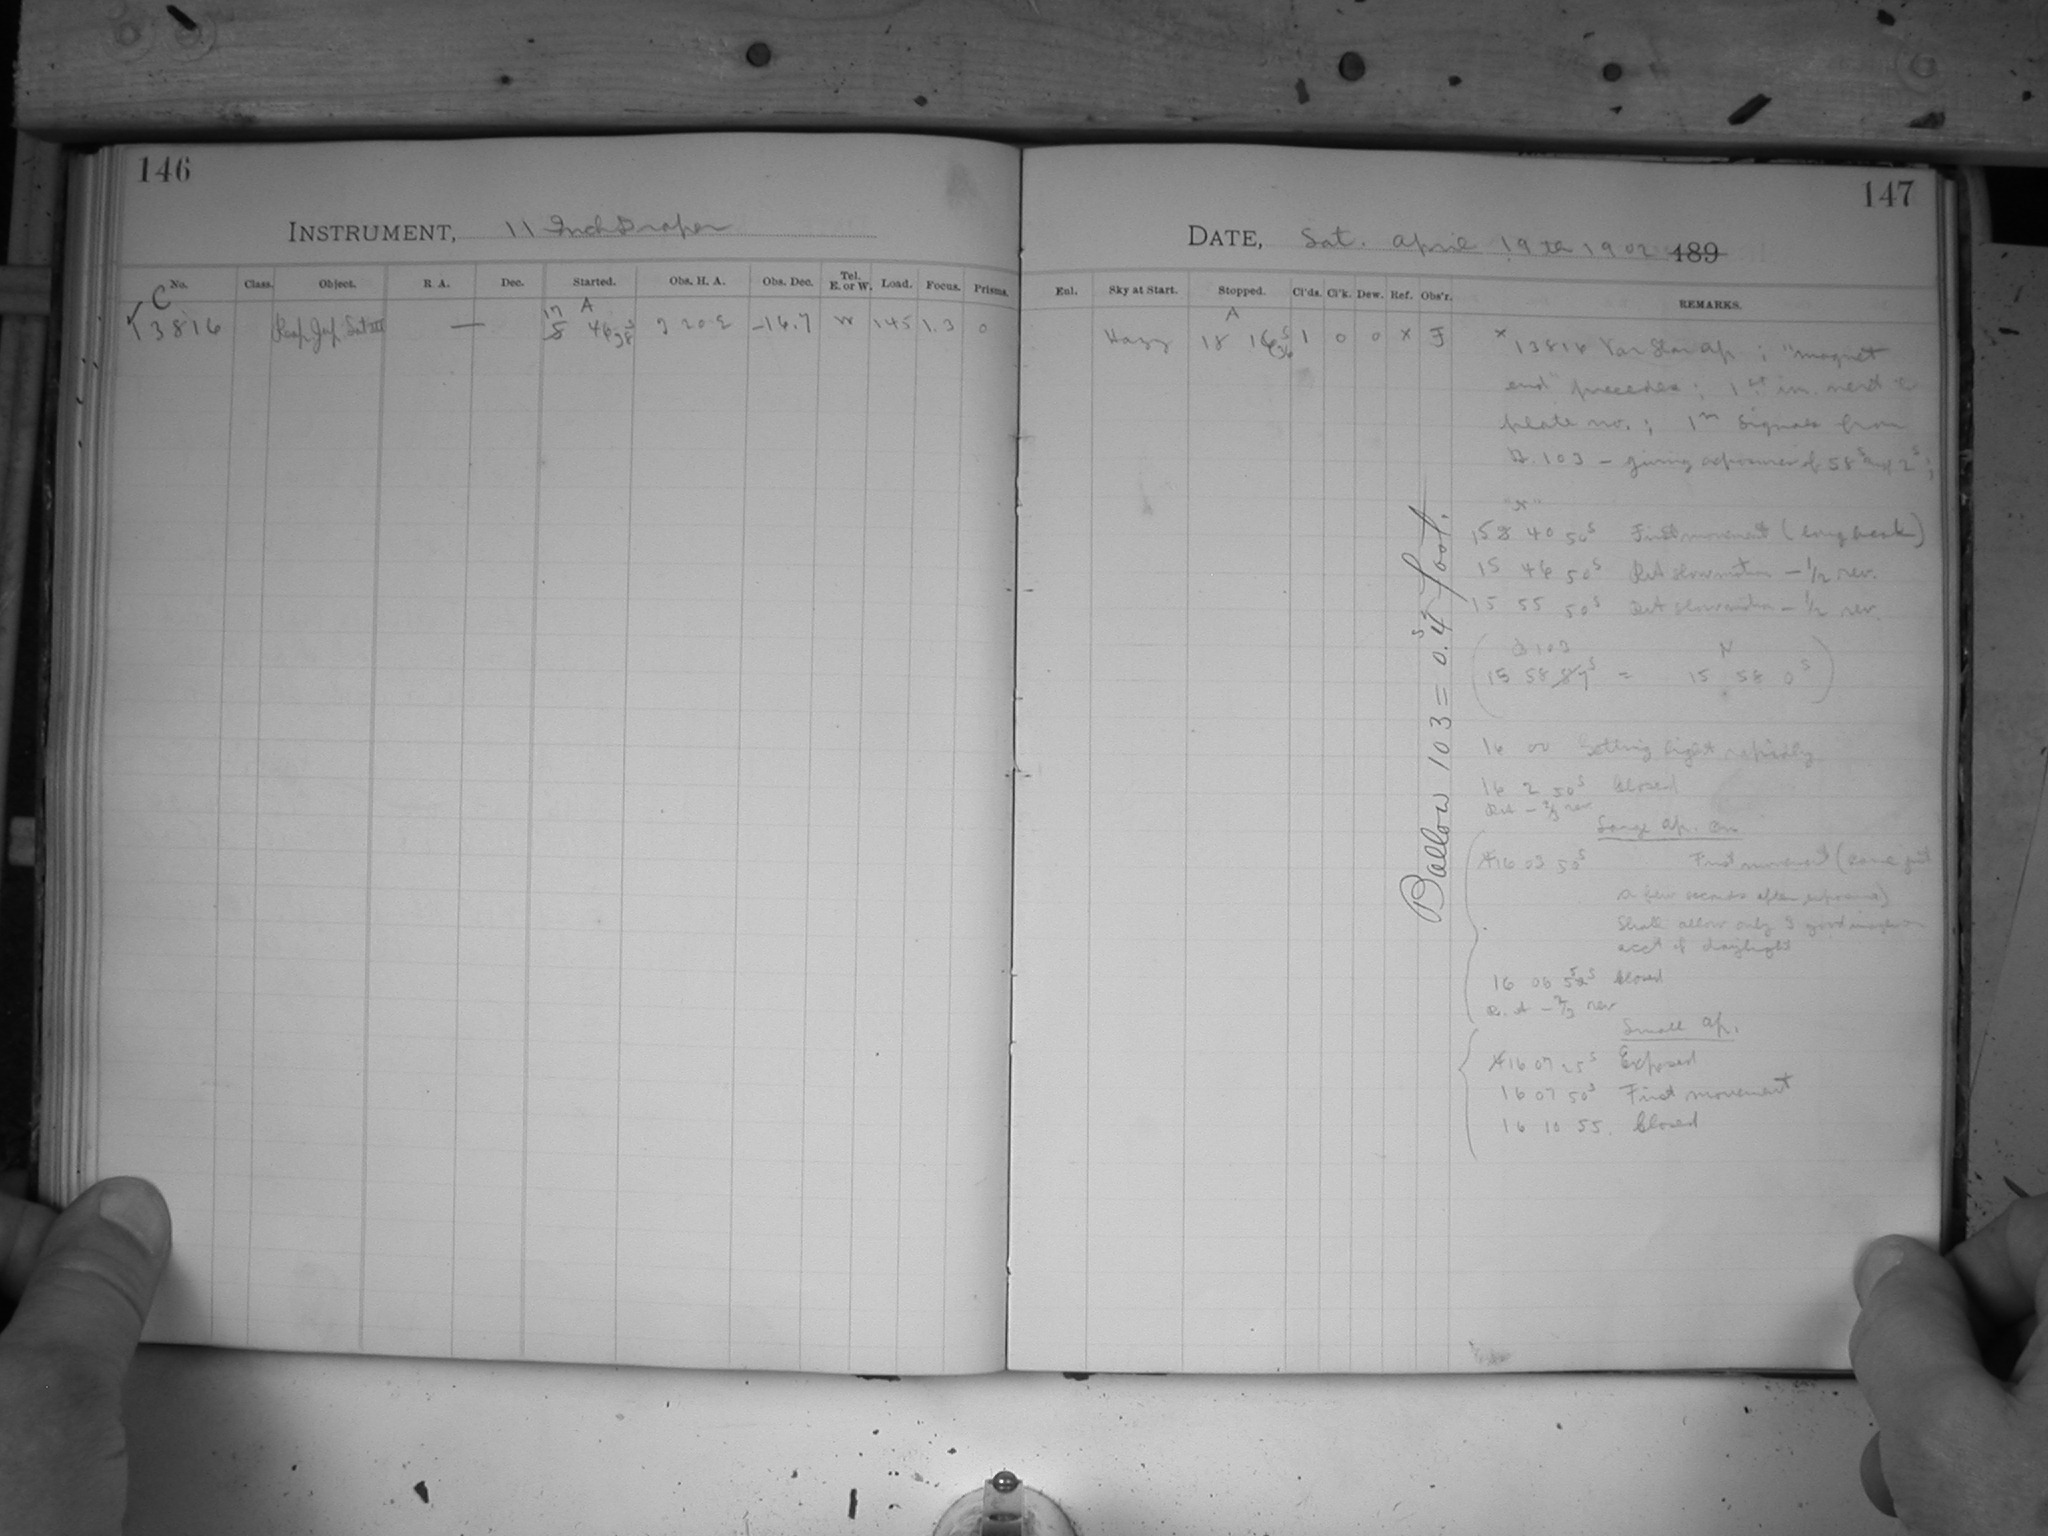 146
INSTRUMENT, 11 Inch Draper
No. Class. Object. R. A. Dec. Started. Obs. H. A. Obs. Dec. Tel. E. or W. Load. Focus. Prisms.
C 13816 Reap. Jup. Sat III — 17 A 46 38 s 3 20 E -16.7 W 145 1.3 0
147
DATE, Sat. April 19th 1902 189
Enl. Sky at Start. Stopped. Cl'ds. Cl'k. Dew. Ref. Obs'r. REMARKS.
Hazy 18 A 16 36 s 1 0 0 x F
x 13816 Var Star ap. ; "magnet
end" precedes ; 1st in. next to
plate no. ; 1m signals from
B. 103 — giving exposures of 58s and 2s ;
15 40 50s First movement (long break)
15 46 50s Ret slow motion — 1/2 rev.
15 55 50s Ret slow motion — 1/2 rev.
B 103 N
15 58 7s = 15 58 0s
16 00 Getting light rapidly
16 2 50s Closed
Ret — 2/3 rev
Large ap. on
16 03 50s First movement (came just
a few seconds after exposure)
Shall allow only 3 good images on
acct of daylight
16 06 55s Closed
R. A — 2/3 rev
Small ap.
16 07 25s Exposed
16 07 50s First movement
16 10 55. Closed
Ballow 103 = 0.4s fast.